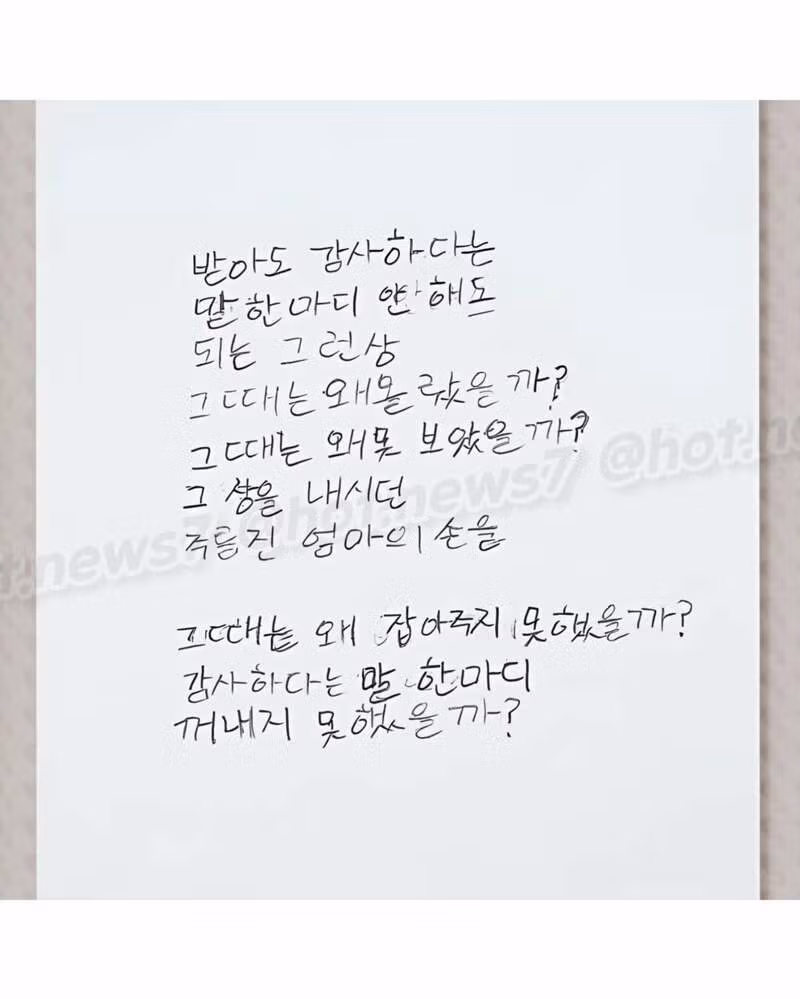 받아도 감사하다는
말 한마디 안 해도
되는 그런상
그때는 왜 몰랐을까?
그때는 왜 못 보았을까?
그 상을 내시던
주름진 엄마의 손을
그때는 왜 잡아주지 못했을까?
감사하다는 말 한마디
꺼내지 못했을까?
t.news7 @hot.news7 @hot.ne